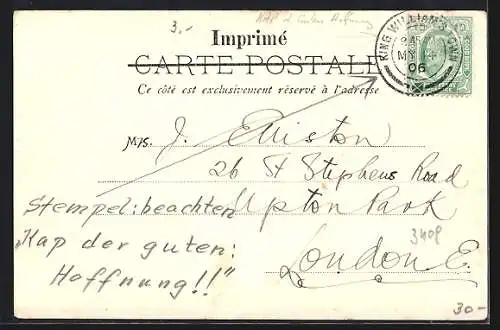 3.-
Kap d. Guten Hoffnung
Imprimé
CARTE POSTALE
Ce côté est exclusivement réservé à l'adresse
KING WILLIAM'S TOWN
MY
06
M/s. J. Elliston
26 St Stephens Road
Upton Park
London E.
Stempel: beachten
"Kap der guten:
Hoffnung!!"
3408
30-